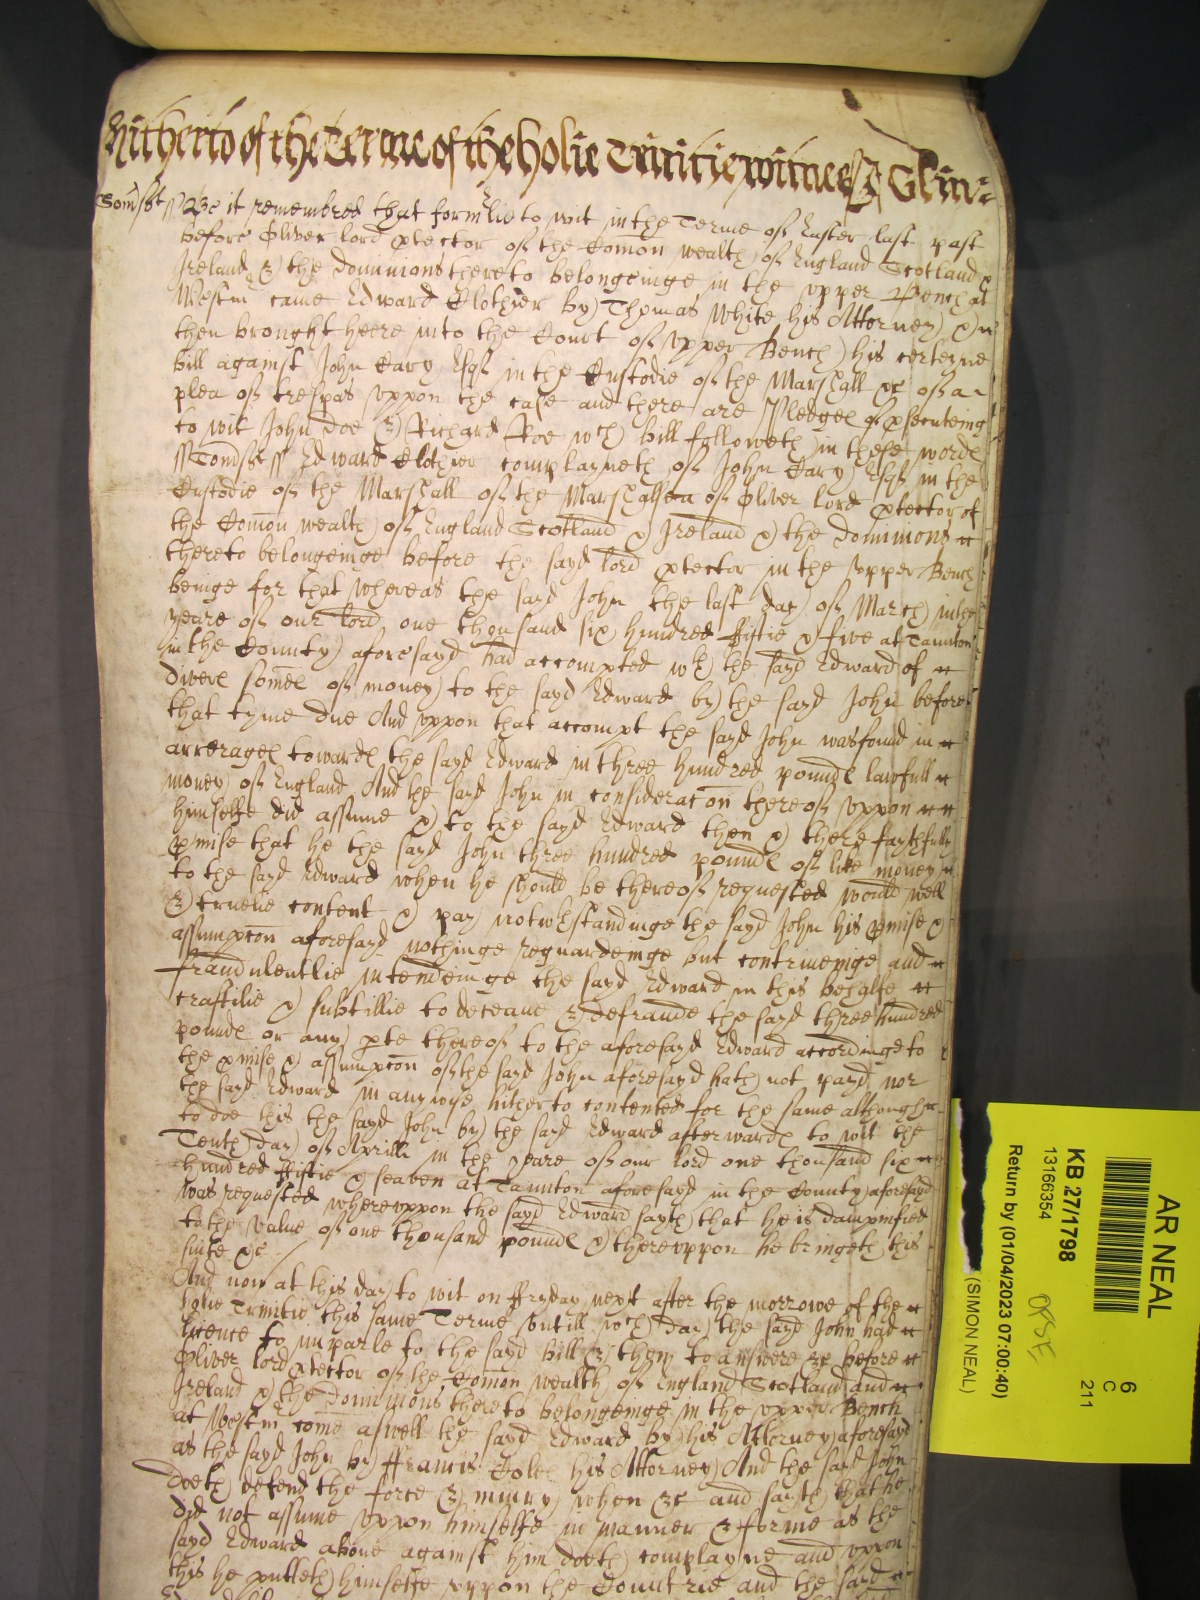 Hitherto of the Terme of the holie Trinitie witnes Glin:
Somst ss Be it remembred that formlie to wit in the Terme of Easter last past
before Oliver lord ptector of the Comon wealth of England Scotland &
Ireland & the dominions thereto belongeinge in the upper Bench at
Westm came Edward Clothier by Thomas White his Attorney &
then brought heere into the Court of upper Bench his certeyne
bill against John Cary Esqr in the Custodie of the Marshall &c of a
plea of trespas uppon the case and there are Pledges of psecuteing
to wit John Doe & Richard Roe wch bill followeth in these words
ss Somst ss Edward Clothier complayneth of John Cary Esqr in the
Custodie of the Marshall of the Marshalsea of Oliver lord ptector of
the Comon wealth of England Scotland & Ireland & the dominions
thereto belongeinge before the sayd lord ptector in the upper Bench
beinge for that whereas the sayd John the last day of March in the
yeare of our lord one thousand six hundred fiftie & five at Taunton
in the County aforesayd had accompted wth the sayd Edward of
divers somes of money to the sayd Edward by the sayd John before
that tyme due And uppon that accompt the sayd John was found in
arrerages towards the sayd Edward in three hundred pounds lawfull
money of England And the sayd John in consideracon thereof uppon
himselfe did assume & to the sayd Edward then & there faythfully
pmise that he the sayd John three hundred pounds of like money
to the sayd Edward when he should be thereof requested would well
& truelie content & pay notwthstandinge the sayd John his pmise &
assumpcon aforesayd nothinge reguardeinge but contriveinge and
fraudulentlie intendeinge the sayd Edward in this behalfe
craftilie & subtillie to deceave & defraude the sayd three hundred
pounds or any pte thereof to the aforesayd Edward accordinge to
the pmise & assumpcon of the sayd John aforesayd hath not payd nor
the sayd Edward in anywise hitherto contented for the same although
to doe this the sayd John by the sayd Edward afterwards to wit the
Tenth day of Aprill in the yeare of our lord one thousand six
hundred fiftie & seaven at Taunton aforesayd in the County aforesayd
was requested whereuppon the sayd Edward sayth that he is dampnified
to the value of one thousand pounds & thereuppon he bringeth this
suite &c
And now at this day to wit on Fryday next after the morrowe of the
holie Trinitie this same Terme untill wch day the sayd John had
licence to imparle to the sayd bill & then to answere &c before
Oliver lord ptector of the Comon wealth of England Scotland and
Ireland & the dominions thereto belongeinge in the upper Bench
at Westm come aswell the sayd Edward by his Attorney aforesayd
as the sayd John by Francis Coles his Attorney And the sayd John
doeth defend the force & iniury when &c and sayth that he
did not assume uppon himselfe in manner & forme as the
sayd Edward above against him doeth complayne and uppon
this he putteth himselfe uppon the Countrie and the sayd
AR NEAL
6
C
211
KB 27/1798
13166354
Return by (01/04/2023 07:00:40)
(SIMON NEAL)